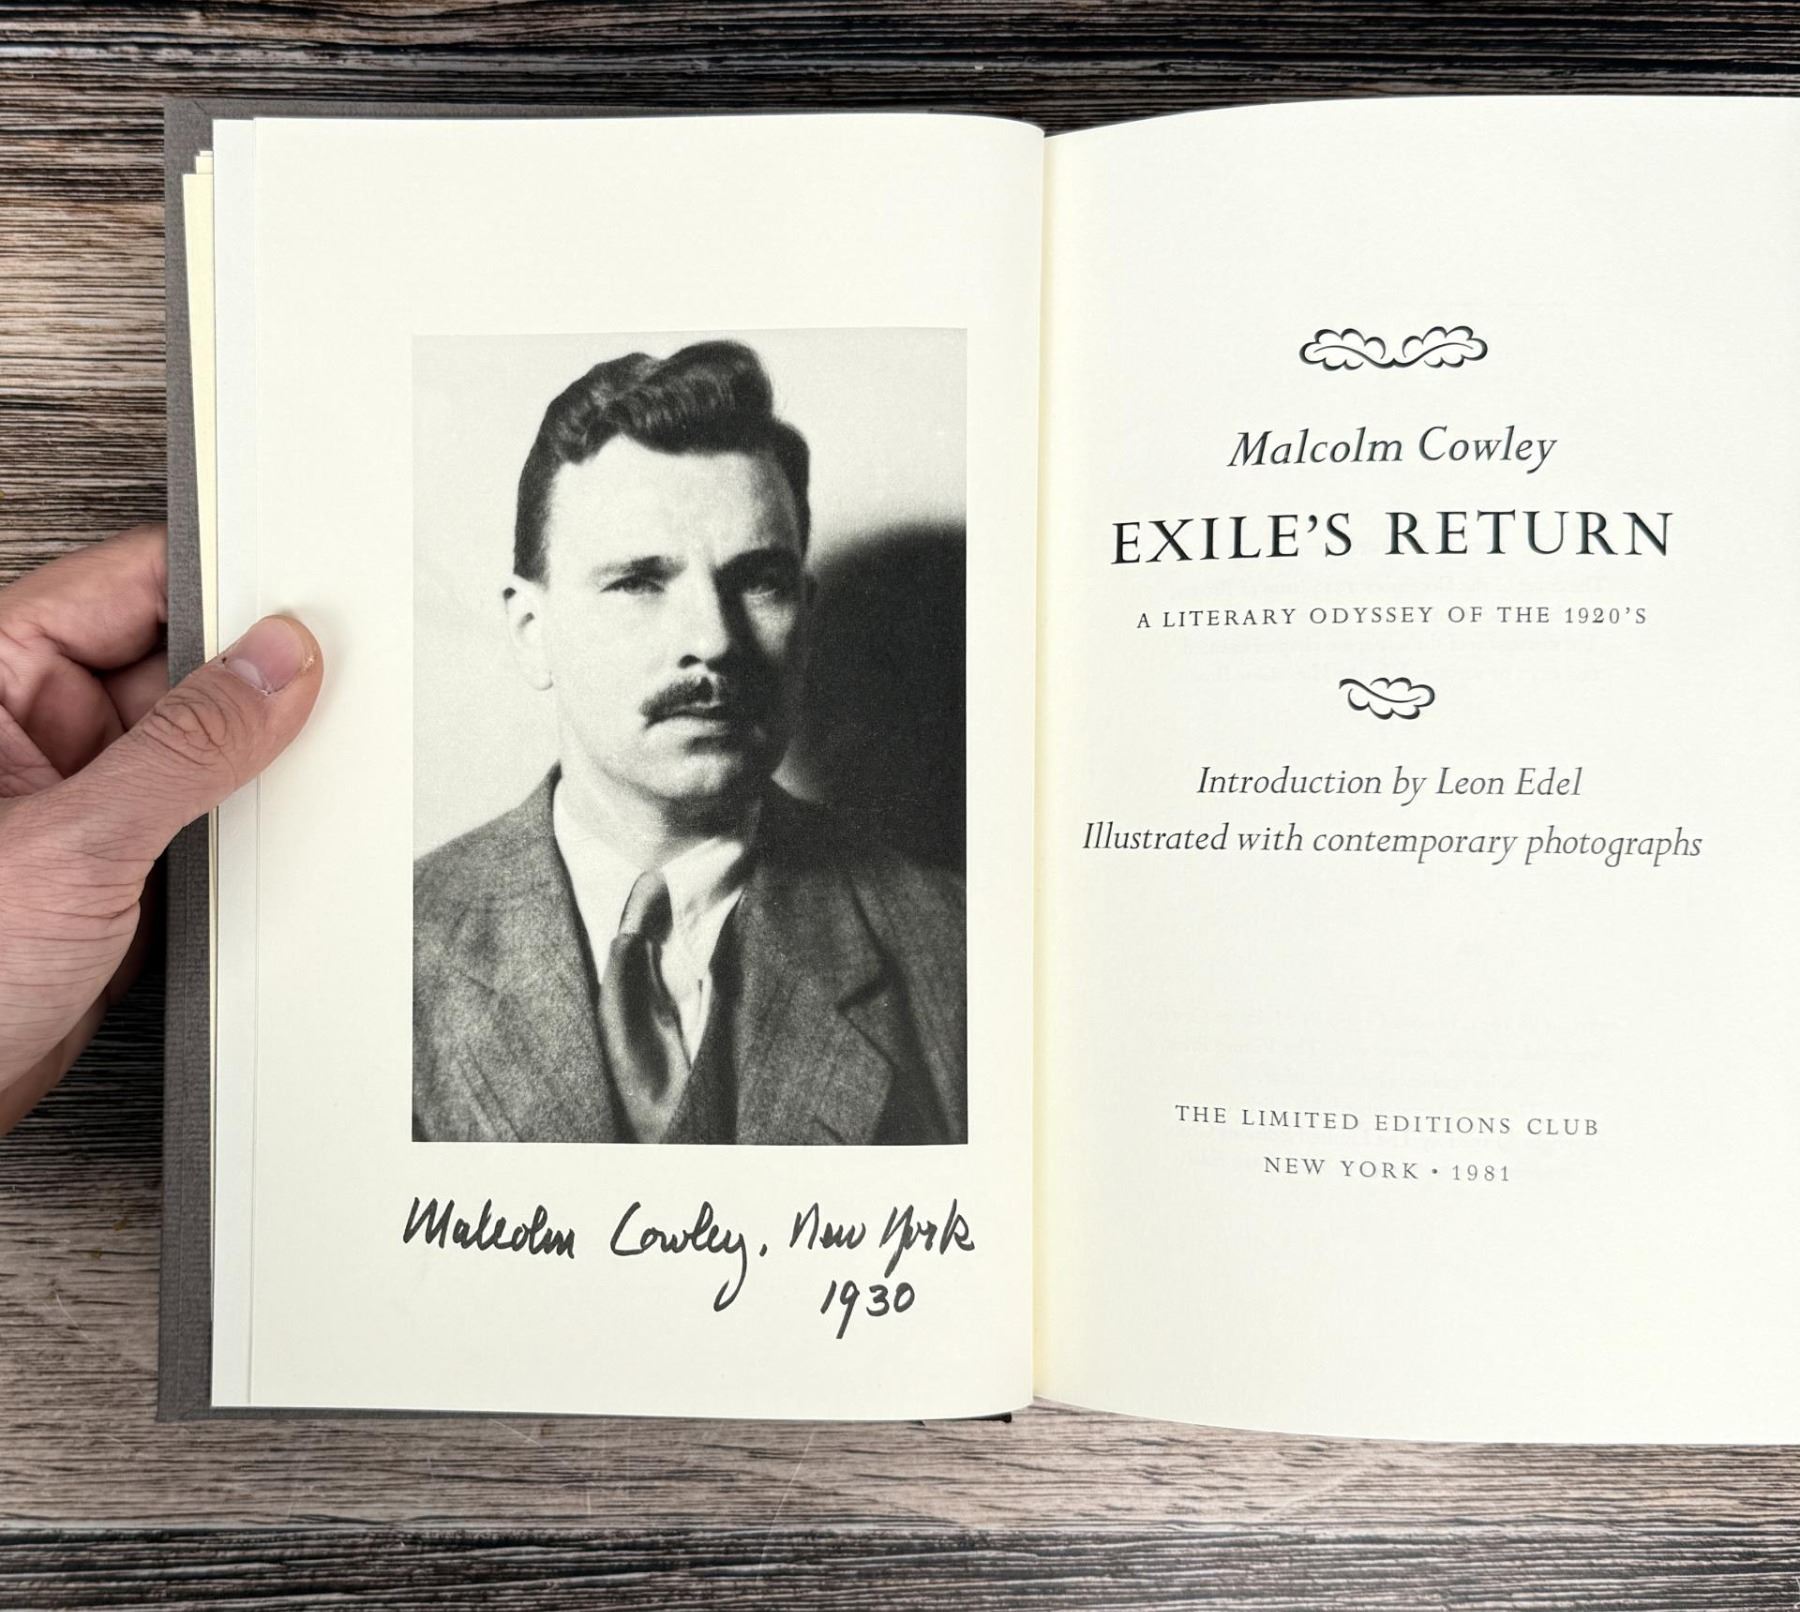 Malcolm Cowley, New York
1930
Malcolm Cowley
EXILE'S RETURN
A LITERARY ODYSSEY OF THE 1920'S
Introduction by Leon Edel
Illustrated with contemporary photographs
THE LIMITED EDITIONS CLUB
NEW YORK • 1981